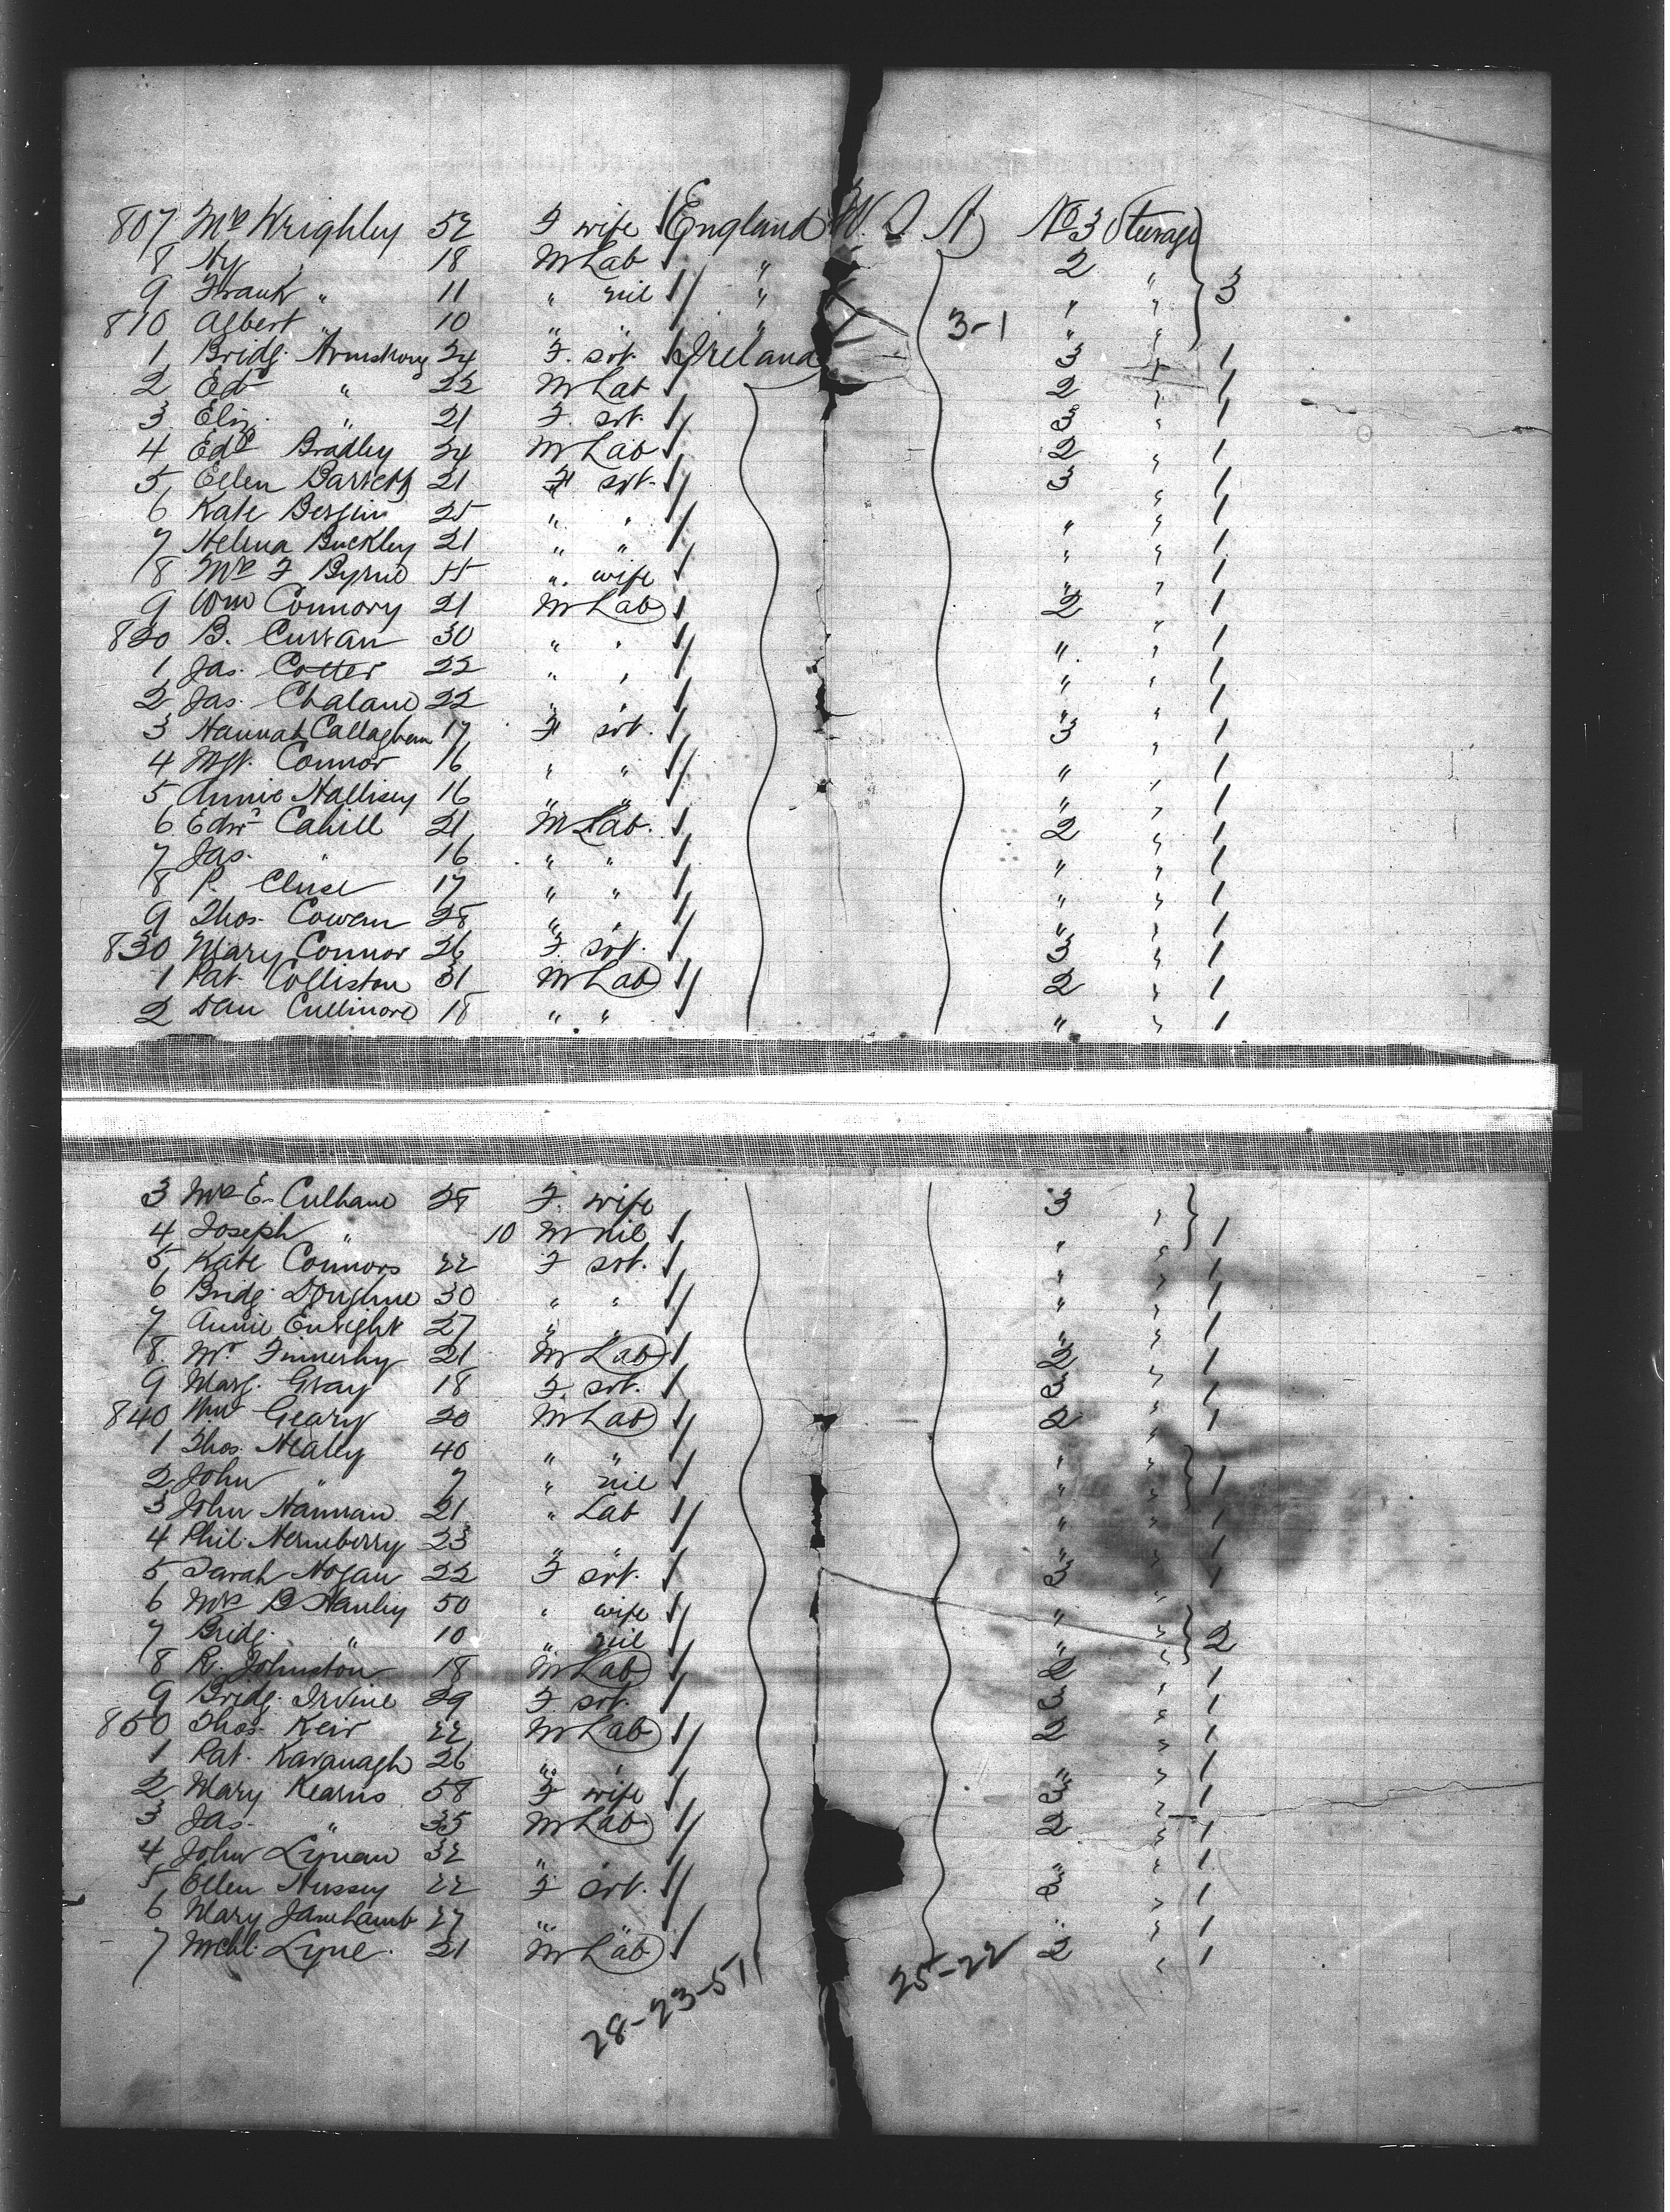 807 Mrs Wrighley 52 F wife England U. S. A No 3 Steerage
8 Hy " 18 M Lab " 2 "
9 Frank " 11 " nil " " " 3
810 Albert " 10 " " " 3-1 " "
1 Bridg. Armstrong 24 F. svt. Ireland 3 " 1
2 Edd " 22 M Lab 2 " 1
3 Eliz. " 21 F. svt. 3 " 1
4 Edd Bradley 24 M Lab 2 " 1
5 Ellen Barrett 21 F svt. 3 " 1
6 Kate Bergin 25 " " " " 1
7 Helena Buckley 21 " " " " 1
8 Mrs F Byrne 55 " wife " " 1
9 Wm Connory 21 M Lab 2 " 1
820 B. Curran 30 " " " " 1
1 Jas. Cotter 22 " " " " 1
2 Jas. Chalane 22 " " " " 1
3 Hannah Callaghan 17 F svt. 3 " 1
4 Mgt. Connor 16 " " " " 1
5 Annie Hallisey 16 " " " " 1
6 Edwd Cahill 21 M Lab. 2 " 1
7 Jas. " 16 " " " " 1
8 P. Cluse 17 " " " " 1
9 Thos. Cowan 28 " " " " 1
830 Mary Connor 26 F. svt. 3 " 1
1 Pat. Colliston 31 M Lab 2 " 1
2 Dan Cullinore 18 " " " " 1
3 Mrs E. Culhane 28 F. wife 3 "
4 Joseph " 10 M nil " " 1
5 Kate Connors 22 F svt. " " 1
6 Bridg. Donghue 30 " " " " 1
7 Annie Enright 27 " " " " 1
8 Mr. Finnerhy 21 M Lab 2 " 1
9 Marg. Gray 18 F. svt. 3 " 1
840 Wm Geary 20 M Lab 2 " 1
1 Thos. Healey 40 " " " "
2 John " 7 " nil " " 1
3 John Hannan 21 " Lab " " 1
4 Phil. Herneberry 23 " " " " 1
5 Sarah Hogan 22 F svt. 3 " 1
6 Mrs B Hanley 50 " wife " "
7 Bridg. " 10 " nil " " 2
8 R. Johnston 18 M Lab 2 " 1
9 Bridg. Irvine 29 F svt. 3 " 1
850 Thos. Keir 22 M Lab 2 " 1
1 Pat. Kavanagh 26 " " " " 1
2 Mary Kearns 58 F wife 3 " 1
3 Jas. " 35 M Lab 2 " 1
4 John Lynan 32 " " " " 1
5 Ellen Hussey 22 F svt. 3 " 1
6 Mary Jane Lamb 27 " " " " 1
7 Mchl. Lyne. 21 M Lab 2 " 1
28-23-51 25-22